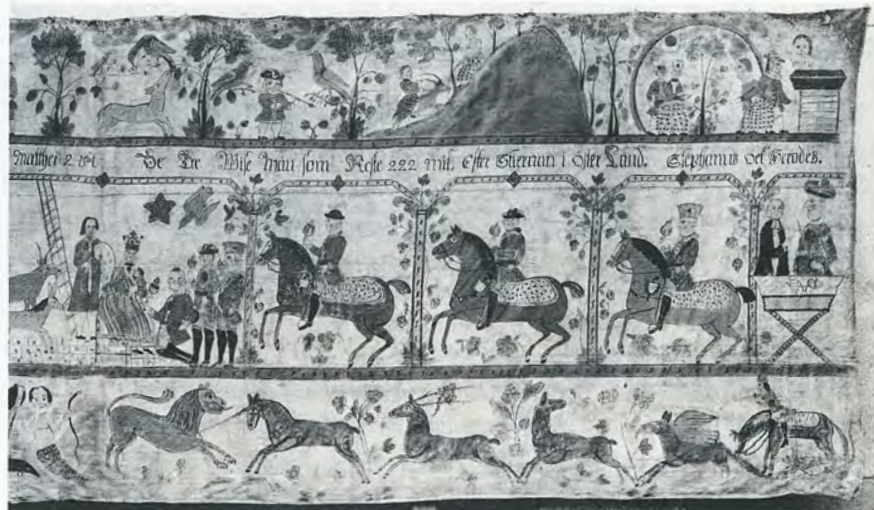 Matthei 2 Cap De Tre Wise Män som Reste 222 mil, Efter Stiernan i Öster Land. Stephanus och Herodes.